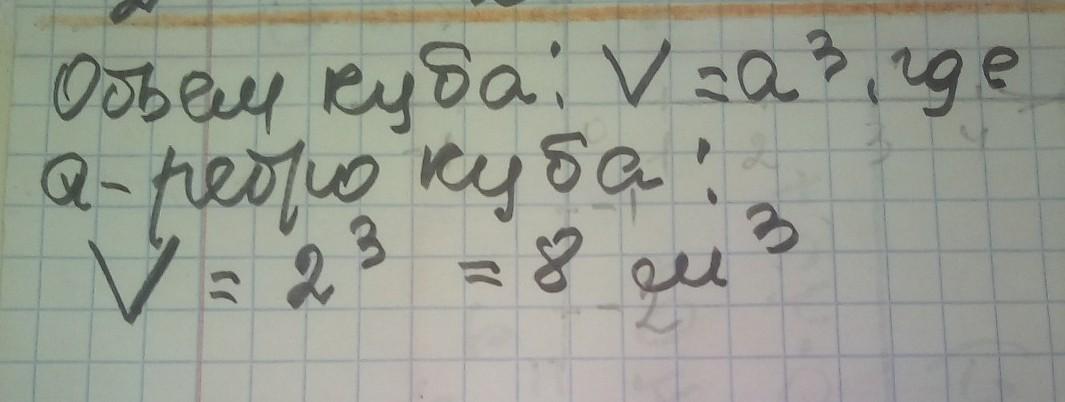 Объем куба: V = a³, где
a - ребро куба:
V = 2³ = 8 м³